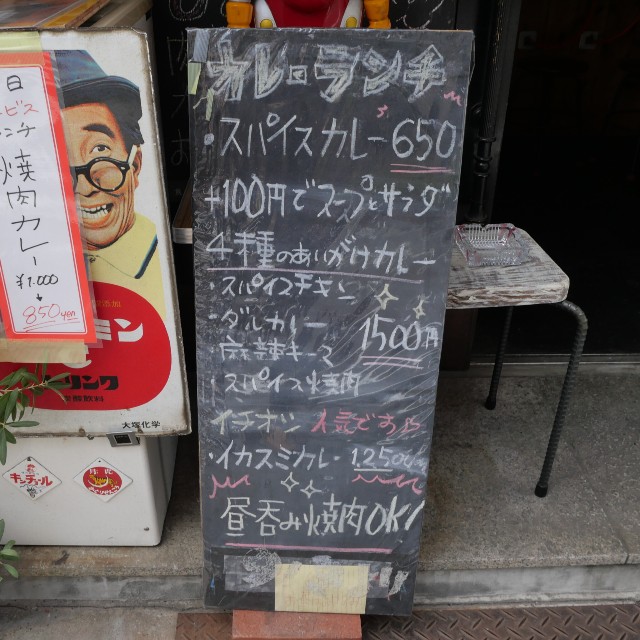 カレーランチ
・スパイスカレー650
+100円でスープとサラダ
4種のあいがけカレー
・スパイスチキン
・ダルカレー
麻辣キーマ
・スパイス焼肉
1500円
イチオシ 人気です
・イカスミカレー 1250
昼呑み焼肉OK!
日
ービス
ンチ
焼肉カレー
¥1.000
↓
850yen
ミン
大塚化学
キンチョール